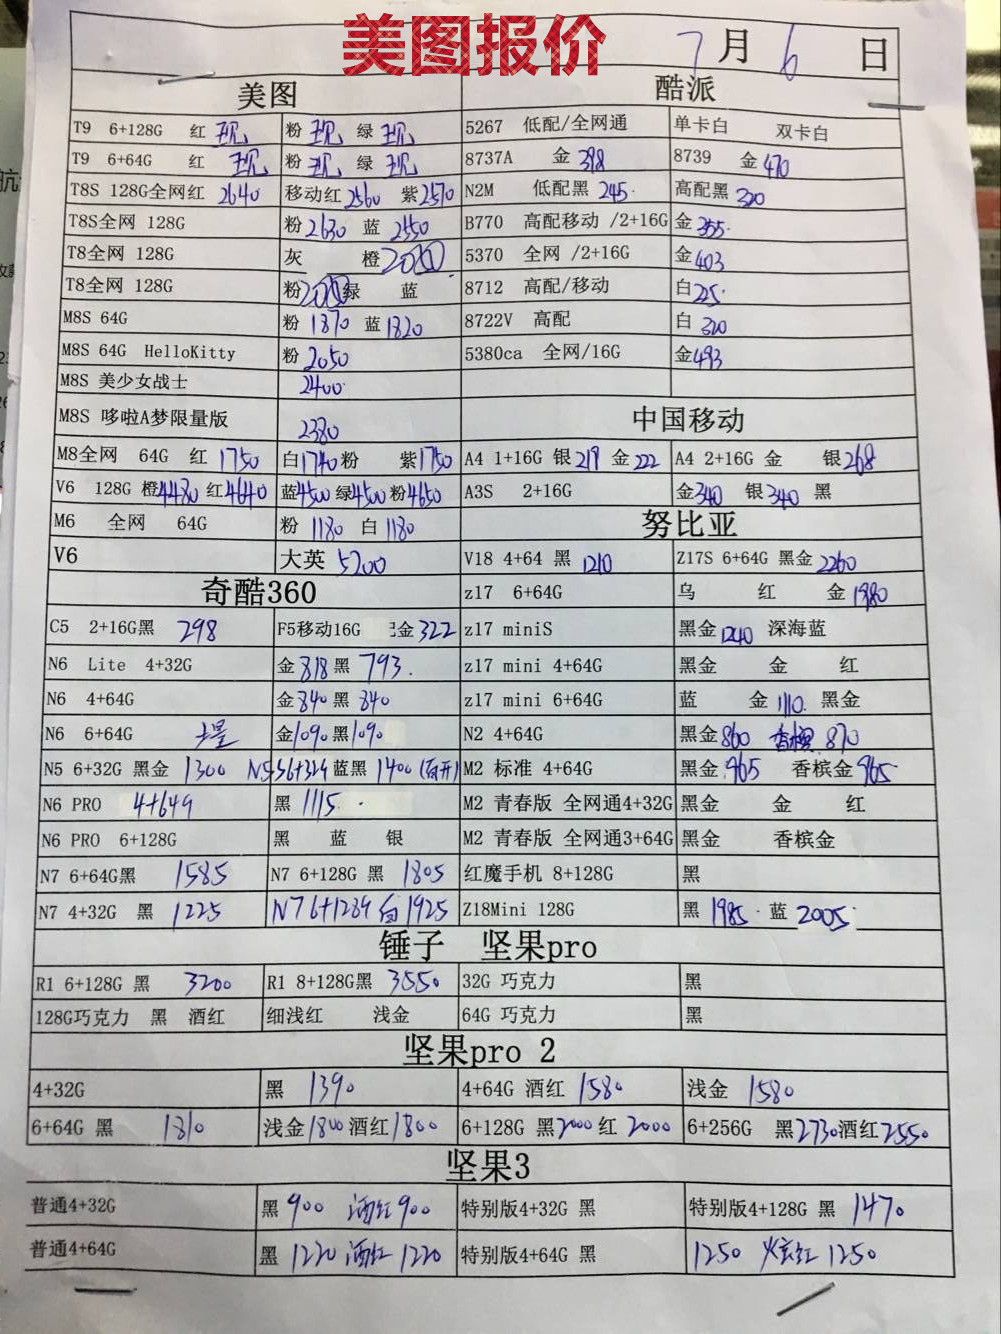 美图报价
7月6日
美图 酷派
T9 6+128G 红 现 粉 现 绿 现 5267 低配/全网通 单卡白 双卡白
T9 6+64G 红 现 粉 现 绿 现 8737A 金 398 8739 金 470
T8S 128G全网红 2640 移动红 2560 紫 2570 N2M 低配黑 245 高配黑 320
T8S全网 128G 粉 2630 蓝 2550 B770 高配移动 /2+16G 金 355
T8全网 128G 灰 橙 5370 全网 /2+16G 金 403
T8全网 128G 粉 绿 蓝 8712 高配/移动 白
M8S 64G 粉 1870 蓝 1820 8722V 高配 白 320
M8S 64G HelloKitty 粉 2050 5380ca 全网/16G 金 493
M8S 美少女战士 2400
M8S 哆啦A梦限量版 2380 中国移动
M8全网 64G 红 1750 白 1740 粉 紫 1750 A4 1+16G 银 219 金 222 A4 2+16G 金 银 268
V6 128G 橙 4480 红 4640 蓝 4500 绿 4500 粉 4650 A3S 2+16G 金 340 银 340 黑
M6 全网 64G 粉 1180 白 1180 努比亚
V6 大英 5200 V18 4+64 黑 1210 Z17S 6+64G 黑金 2260
奇酷360 z17 6+64G 乌 红 金 1980
C5 2+16G黑 298 F5移动16G 金 322 z17 miniS 黑金 1240 深海蓝
N6 Lite 4+32G 金 818 黑 793. z17 mini 4+64G 黑金 金 红
N6 4+64G 金 840 黑 840 z17 mini 6+64G 蓝 金 1110. 黑金
N6 6+64G 金 1090 黑 1090 N2 4+64G 黑金 860 香槟 870
N5 6+32G 黑金 1300 N5S 6+32G 蓝黑 1400 M2 标准 4+64G 黑金 965 香槟金 965
N6 PRO 4+64G 黑 1115 M2 青春版 全网通4+32G 黑金 金 红
N6 PRO 6+128G 黑 蓝 银 M2 青春版 全网通3+64G 黑金 香槟金
N7 6+64G黑 1585 N7 6+128G 黑 1805 红魔手机 8+128G 黑
N7 4+32G 黑 1225 N7 6+128G 白 1925 Z18Mini 128G 黑 1985 蓝 2005
锤子 坚果pro
R1 6+128G 黑 3200 R1 8+128G黑 3550 32G 巧克力 黑
128G巧克力 黑 酒红 细浅红 浅金 64G 巧克力 黑
坚果pro 2
4+32G 黑 1390 4+64G 酒红 1580 浅金 1580
6+64G 黑 1810 浅金 1800 酒红 1800 6+128G 黑 2000 红 2000 6+256G 黑 2730 酒红 2550
坚果3
普通4+32G 黑 900 酒红 900 特别版4+32G 黑 特别版4+128G 黑 1470
普通4+64G 黑 1220 酒红 1220 特别版4+64G 黑 1250 炫红 1250